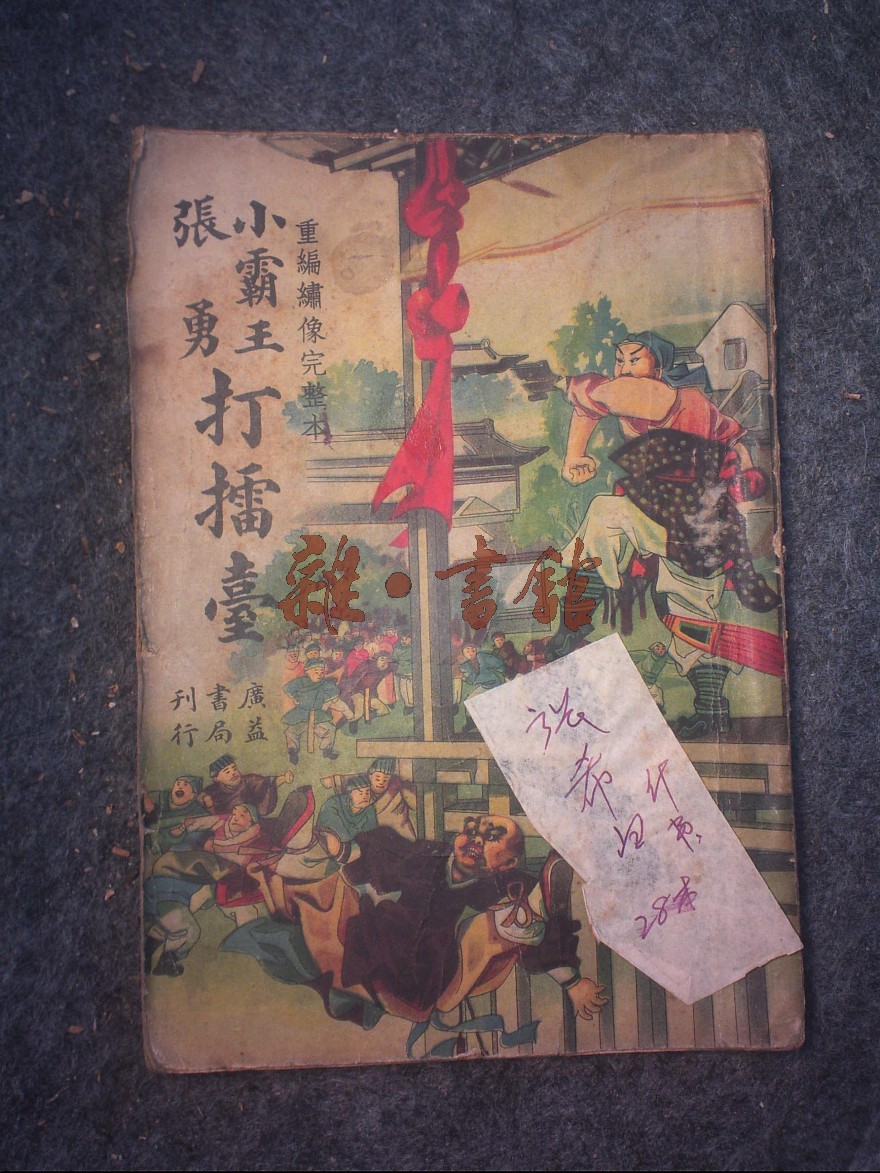 重編繡像完整本
小霸王
張勇
打擂臺
廣益
書局
刊行
雜·書館
張
28